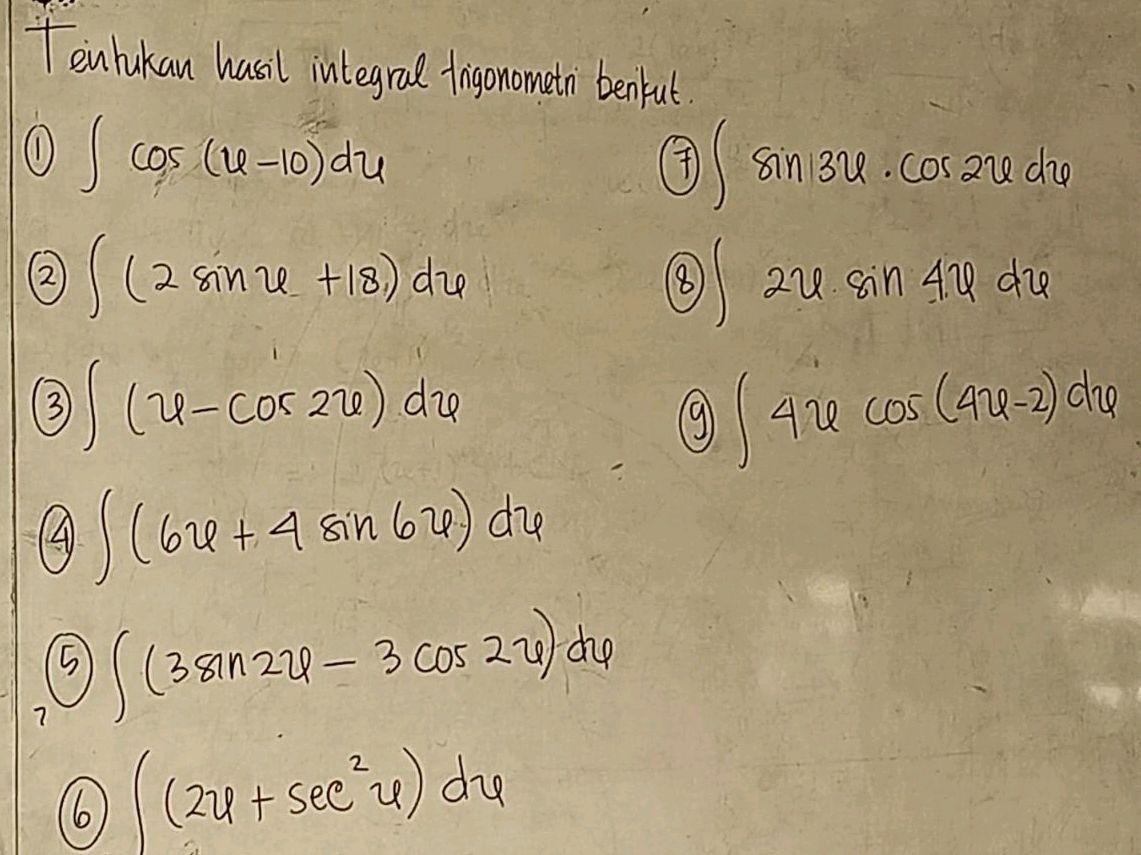 Tentukan hasil integral trigonometri berikut.
① ∫ cos (x-10) dx
② ∫ (2 sin x +18) dx
③ ∫ (x - cos 2x) dx
④ ∫ (6x + 4 sin 6x) dx
⑤ ∫ (3 sin 2x - 3 cos 2x) dx
⑥ ∫ (2x + sec² x) dx
⑦ ∫ sin 3x . cos 2x dx
⑧ ∫ 2x . sin 4x dx
⑨ ∫ 4x cos (4x-2) dx